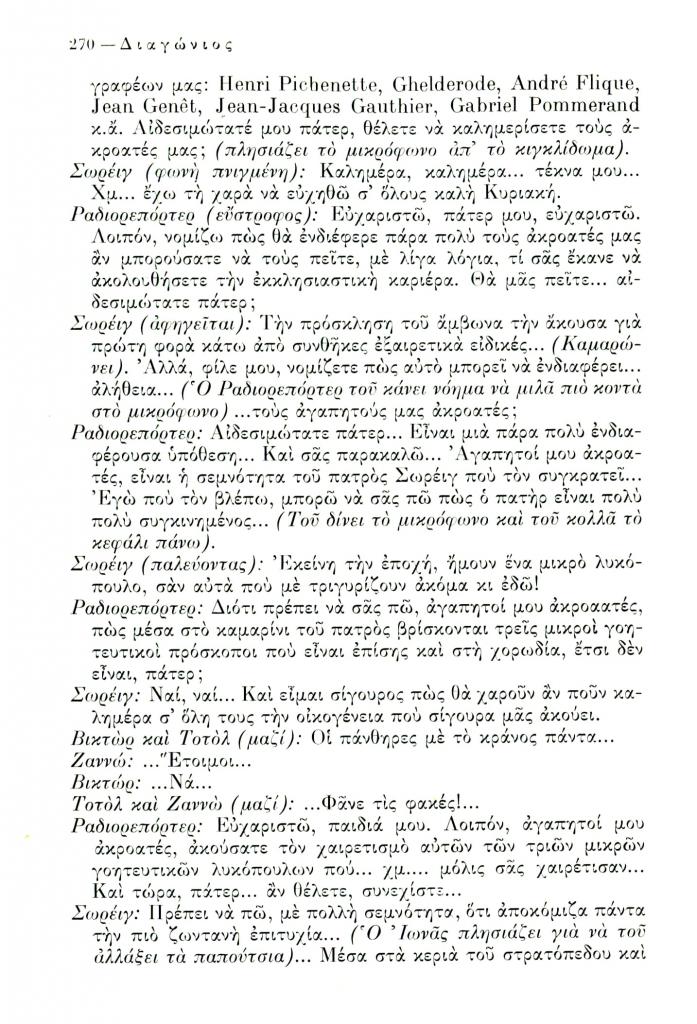 270 — Διαγώνιος
γραφέων μας: Henri Pichenette, Ghelderode, André Flique,
Jean Genêt, Jean-Jacques Gauthier, Gabriel Pommerand
κ.ἄ. Αἰδεσιμώτατέ μου πάτερ, θέλετε νὰ καλημερίσετε τοὺς ἀ-
κροατές μας; (πλησιάζει τὸ μικρόφωνο ἀπ' τὸ κιγκλίδωμα).
Σωρέιγ (φωνὴ πνιγμένη): Καλημέρα, καλημέρα... τέκνα μου...
Χμ... ἔχω τὴ χαρὰ νὰ εὐχηθῶ σ' ὅλους καλὴ Κυριακή.
Ραδιορεπόρτερ (εὔστροφος): Εὐχαριστῶ, πάτερ μου, εὐχαριστῶ.
Λοιπόν, νομίζω πὼς θὰ ἐνδιέφερε πάρα πολὺ τοὺς ἀκροατές μας
ἂν μπορούσατε νὰ τοὺς πεῖτε, μὲ λίγα λόγια, τί σᾶς ἔκανε νὰ
ἀκολουθήσετε τὴν ἐκκλησιαστικὴ καριέρα. Θὰ μᾶς πεῖτε... αἰ-
δεσιμώτατε πάτερ;
Σωρέιγ (ἀφηγεῖται): Τὴν πρόσκληση τοῦ ἄμβωνα τὴν ἄκουσα γιὰ
πρώτη φορὰ κάτω ἀπὸ συνθῆκες ἐξαιρετικὰ εἰδικές... (Καμαρώ-
νει). Ἀλλά, φίλε μου, νομίζετε πὼς αὐτὸ μπορεῖ νὰ ἐνδιαφέρει...
ἀλήθεια... (Ὁ Ραδιορεπόρτερ τοῦ κάνει νόημα νὰ μιλᾶ πιὸ κοντὰ
στὸ μικρόφωνο) ...τοὺς ἀγαπητούς μας ἀκροατές;
Ραδιορεπόρτερ: Αἰδεσιμώτατε πάτερ... Εἶναι μιὰ πάρα πολὺ ἐνδια-
φέρουσα ὑπόθεση... Καὶ σᾶς παρακαλῶ... Ἀγαπητοί μου ἀκροα-
τές, εἶναι ἡ σεμνότητα τοῦ πατρὸς Σωρέιγ ποὺ τὸν συγκρατεῖ...
Ἐγὼ ποὺ τὸν βλέπω, μπορῶ νὰ σᾶς πῶ πὼς ὁ πατὴρ εἶναι πολὺ
πολὺ συγκινημένος... (Τοῦ δίνει τὸ μικρόφωνο καὶ τοῦ κολλᾶ τὸ
κεφάλι πάνω).
Σωρέιγ (παλεύοντας): Ἐκείνη τὴν ἐποχή, ἤμουν ἕνα μικρὸ λυκό-
πουλο, σὰν αὐτὰ ποὺ μὲ τριγυρίζουν ἀκόμα κι ἐδῶ!
Ραδιορεπόρτερ: Διότι πρέπει νὰ σᾶς πῶ, ἀγαπητοί μου ἀκροαατές,
πὼς μέσα στὸ καμαρίνι τοῦ πατρὸς βρίσκονται τρεῖς μικροὶ γοη-
τευτικοὶ πρόσκοποι ποὺ εἶναι ἐπίσης καὶ στὴ χορωδία, ἔτσι δὲν
εἶναι, πάτερ;
Σωρέιγ: Ναί, ναί... Καὶ εἶμαι σίγουρος πὼς θὰ χαροῦν ἂν ποῦν κα-
λημέρα σ' ὅλη τους τὴν οἰκογένεια ποὺ σίγουρα μᾶς ἀκούει.
Βικτὼρ καὶ Τοτὸλ (μαζί): Οἱ πάνθηρες μὲ τὸ κράνος πάντα...
Ζαννώ: ...Ἕτοιμοι...
Βικτώρ: ...Νά...
Τοτὸλ καὶ Ζαννὼ (μαζί): ...Φᾶνε τὶς φακές!...
Ραδιορεπόρτερ: Εὐχαριστῶ, παιδιά μου. Λοιπόν, ἀγαπητοί μου
ἀκροατές, ἀκούσατε τὸν χαιρετισμὸ αὐτῶν τῶν τριῶν μικρῶν
γοητευτικῶν λυκόπουλων ποὺ... χμ.... μόλις σᾶς χαιρέτισαν...
Καὶ τώρα, πάτερ... ἂν θέλετε, συνεχίστε...
Σωρέιγ: Πρέπει νὰ πῶ, μὲ πολλὴ σεμνότητα, ὅτι ἀποκόμιζα πάντα
τὴν πιὸ ζωντανὴ ἐπιτυχία... (Ὁ Ἰωνᾶς πλησιάζει γιὰ νὰ τοῦ
ἀλλάξει τὰ παπούτσια)... Μέσα στὰ κεριὰ τοῦ στρατόπεδου καὶ